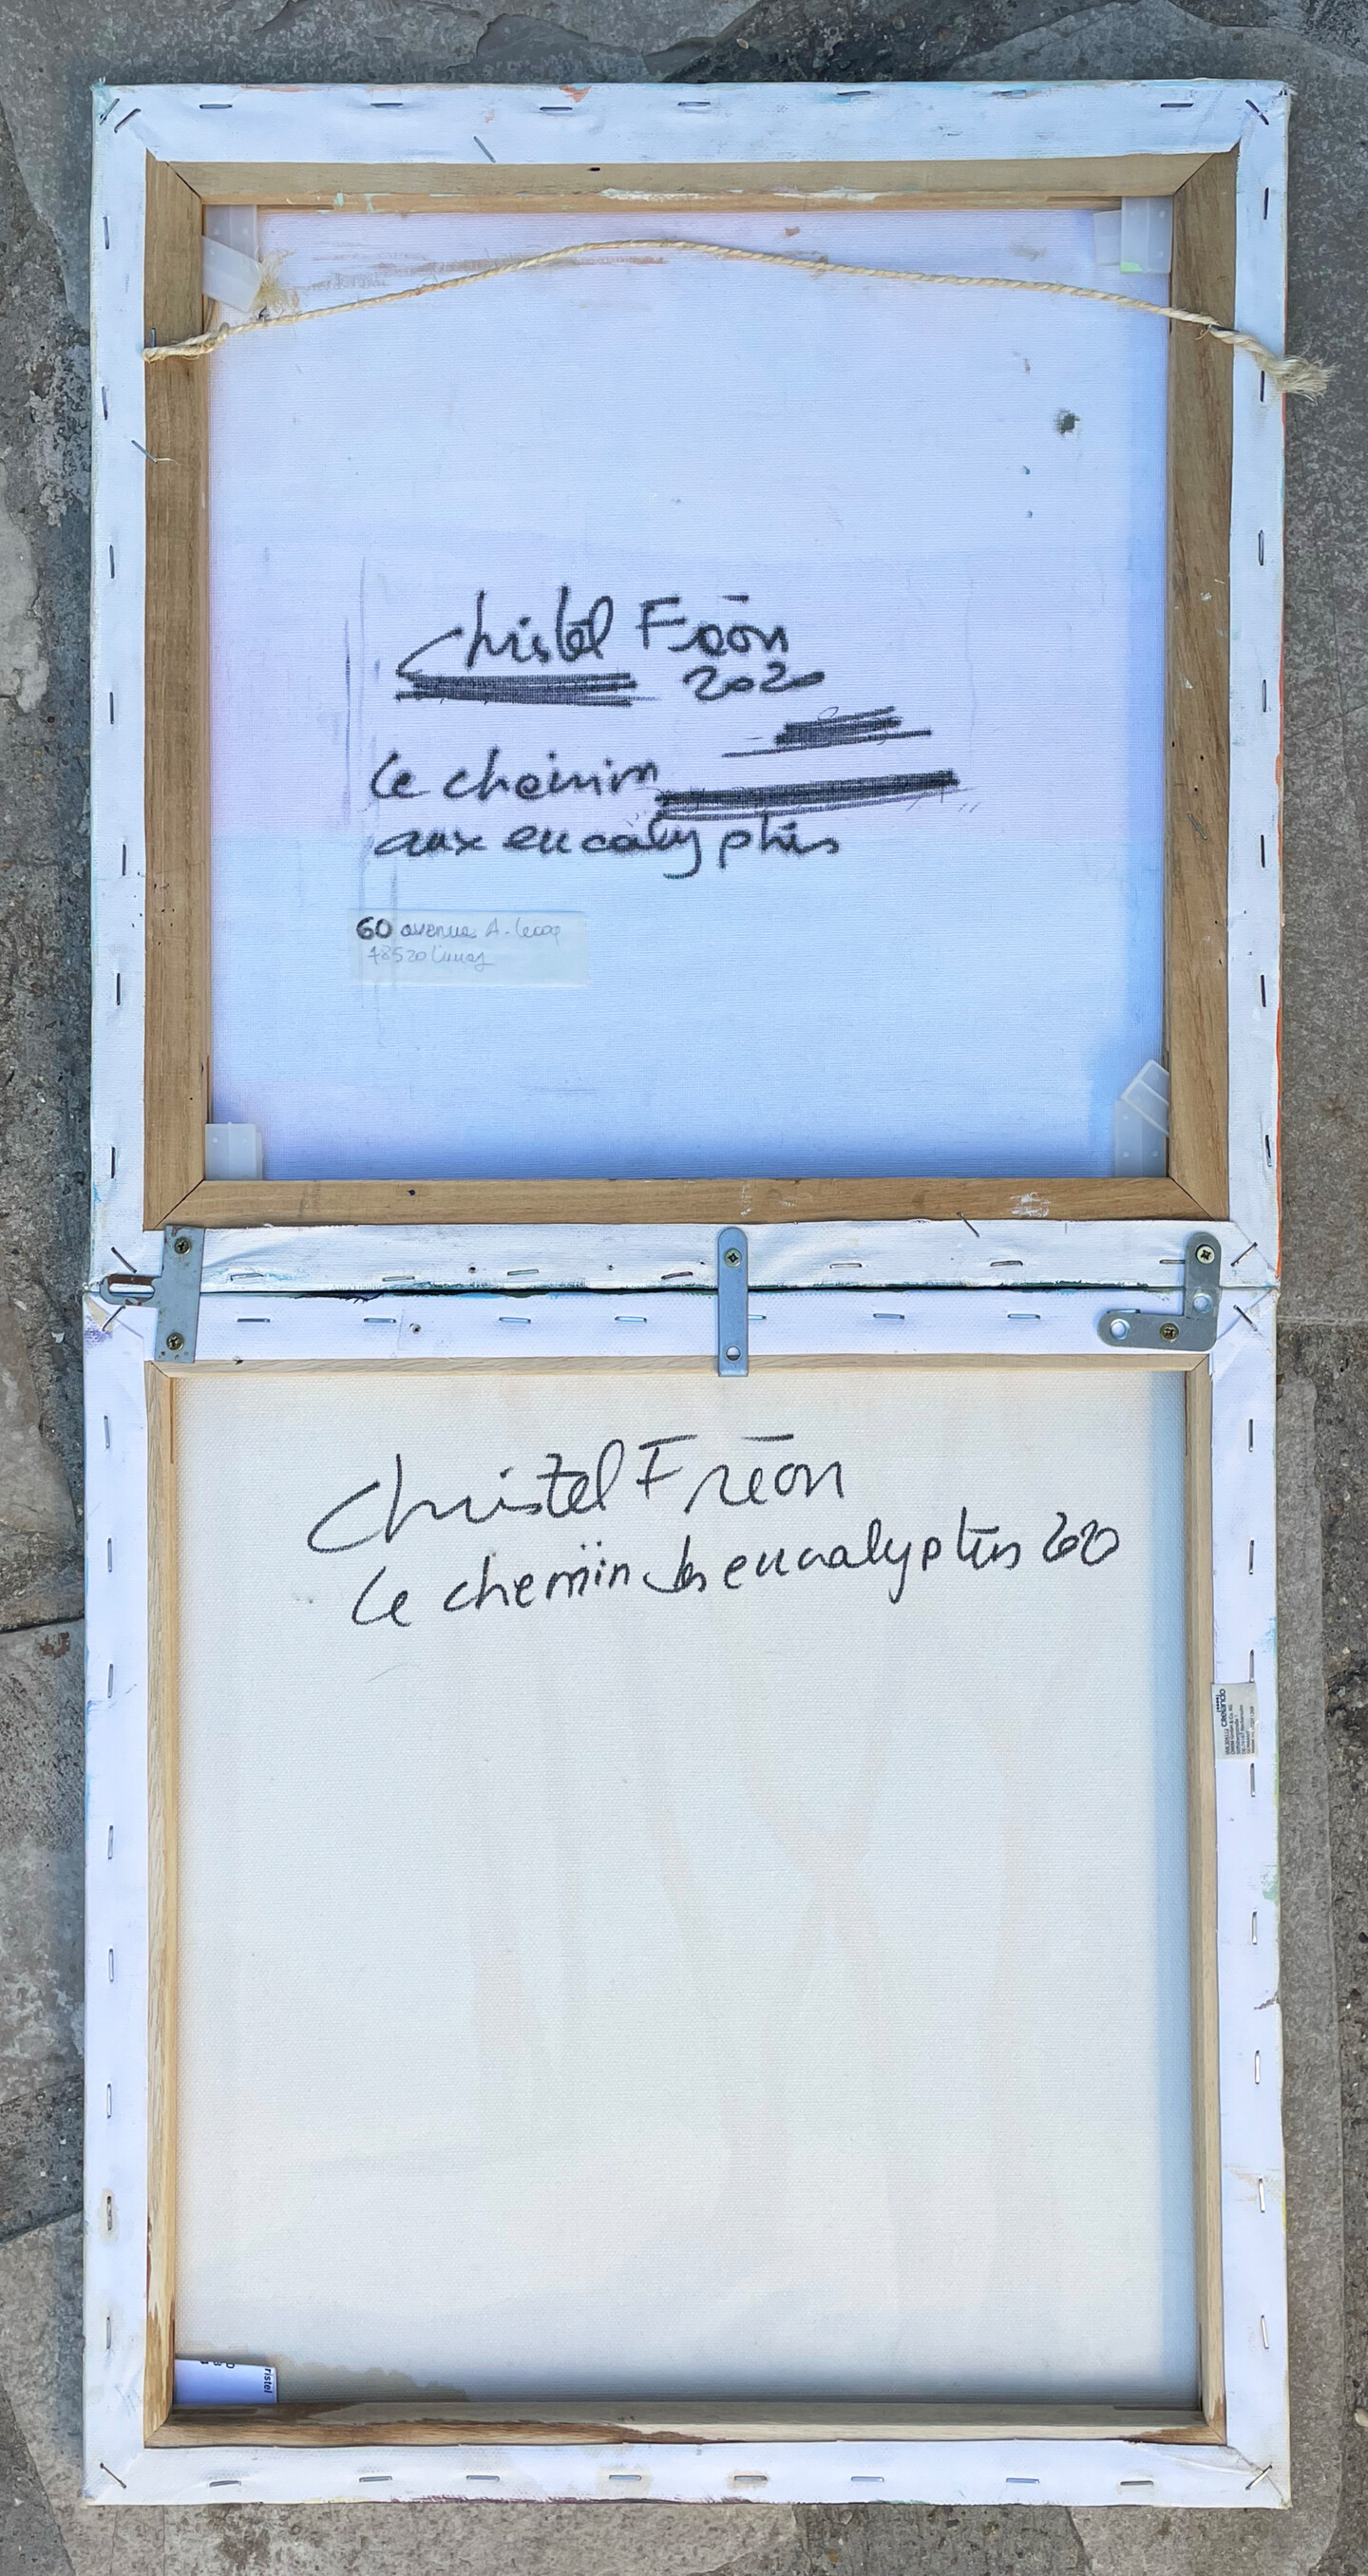 Christel Fréon
2020
Le chemin
aux eucalyptus
60 avenue A.
78520 Limay
Christel Fréon
Le chemin des eucalyptus 2020
Creando
ristel